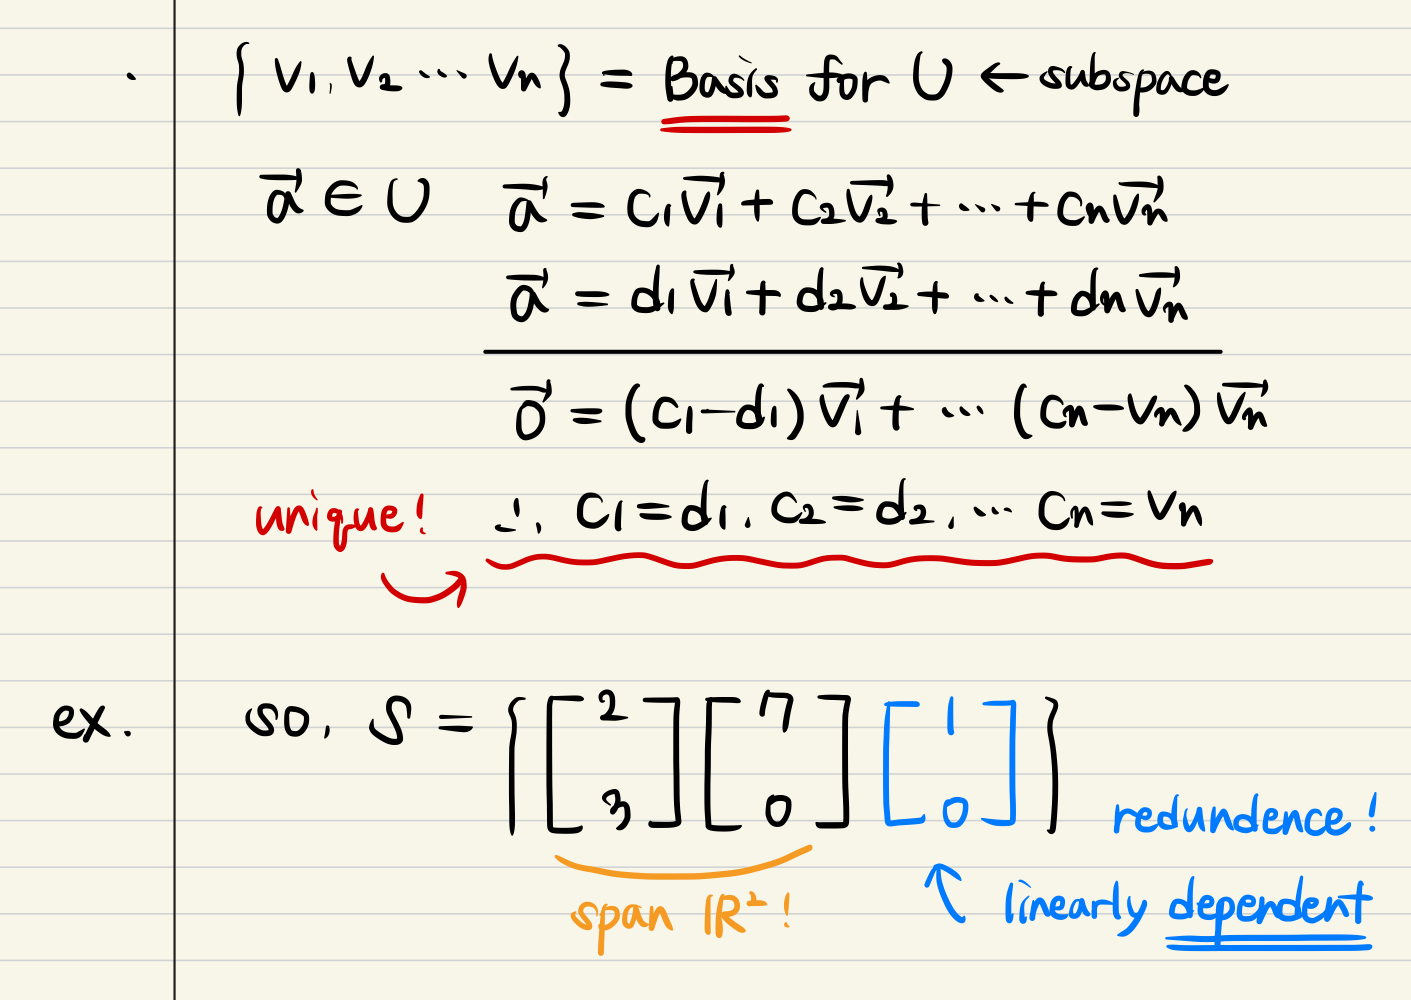 · { v1, v2 ⋯ vn } = Basis for U ← subspace
a⃗ ∈ U a⃗ = c1v⃗1 + c2v⃗2 + ⋯ + cnv⃗n
a⃗ = d1v⃗1 + d2v⃗2 + ⋯ + dnv⃗n
0⃗ = (c1−d1)v⃗1 + ⋯ (cn−vn)v⃗n
unique! ∴ c1=d1, c2=d2, ⋯ cn=vn
ex. so, S = { [2 3] [7 0] [1 0] }
redundence!
span ℝ²! linearly dependent